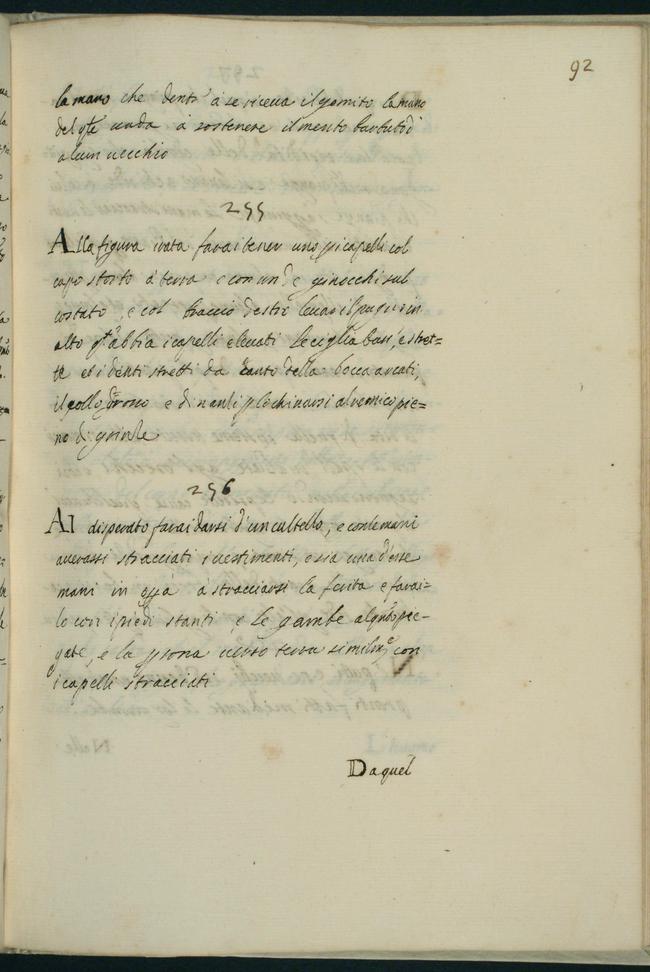 92
la mano che dentr' à se riceva il gomito la mano
del qle vada à sostenere il mento barbuto d'
alcun vecchio
255
Alla figura irata farai tener uno p i capelli col
capo storto à terra e con un d e ginocchi sul
costato, e col braccio destro levar il pugno in
alto qto abbia i capelli elevati le ciglia basse, e stret=
te et i denti stretti da canto della bocca arcati,
il collo grosso e dinanzi p le chinarsi al nemico pie=
no di grinze
256
Al disperato farai darsi d'un cultello, e con le mani
averassi stracciati i vestimenti, e sia una d'esse
mani in opra à stracciarsi la ferita e farai=
lo con i piedi stanti e le gambe alqto pie=
gate, e la psona verso terra similmte con
i capelli stracciati
Daquel